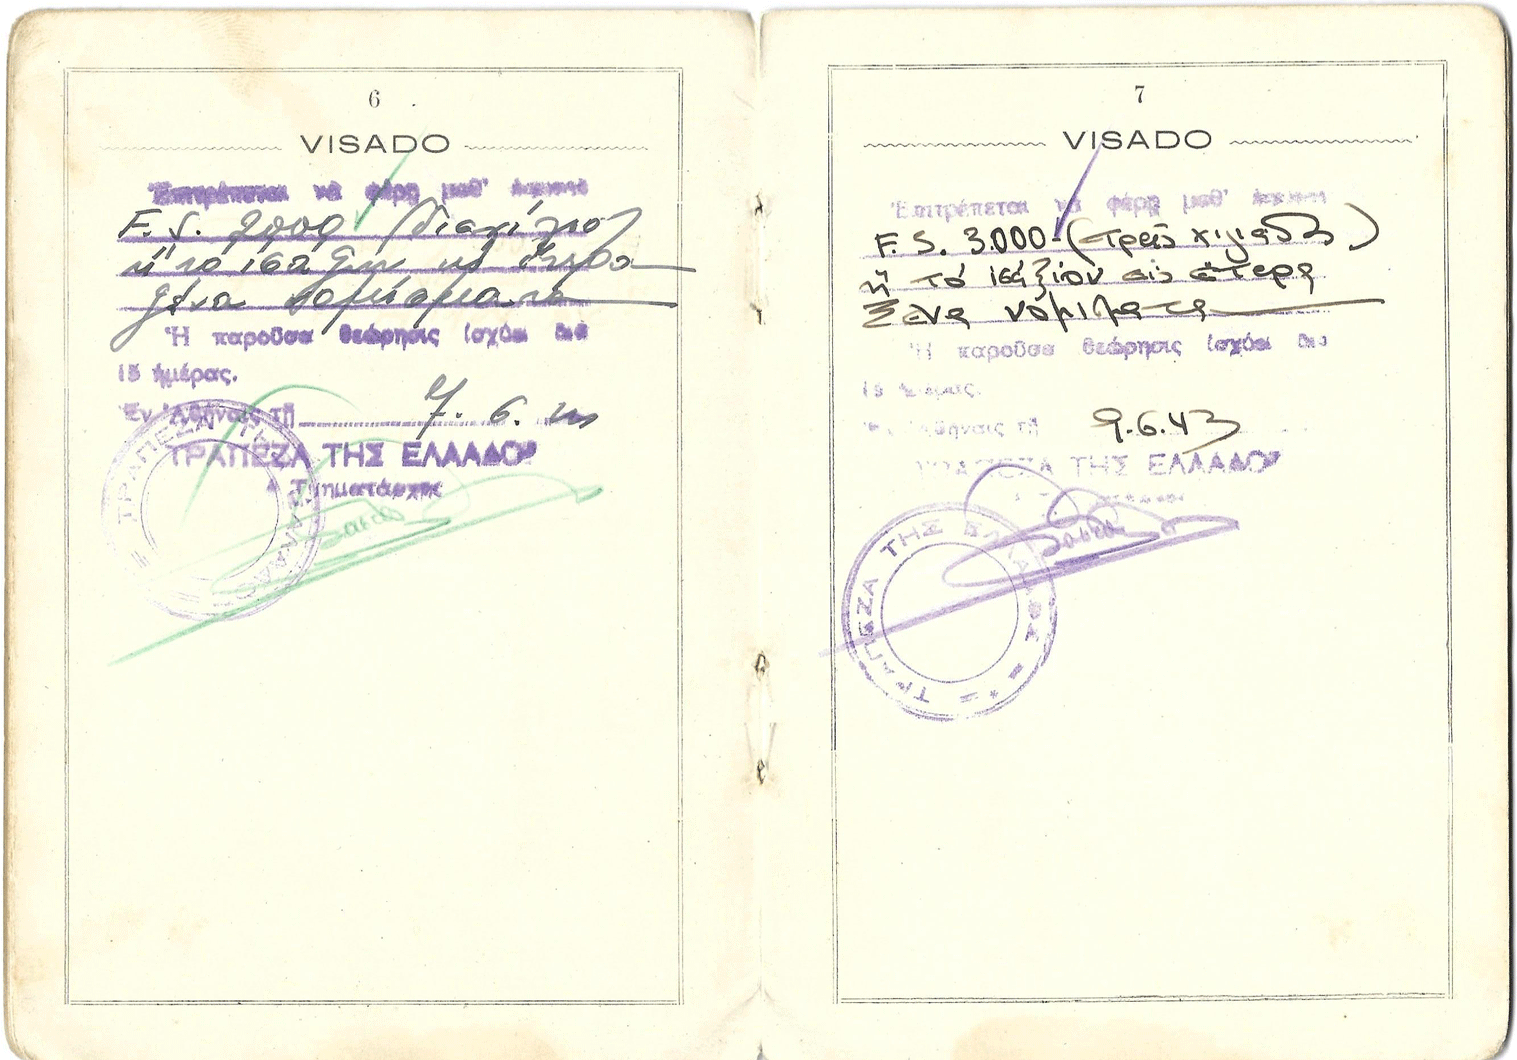 6
VISADO
Ἐπιτρέπεται νὰ φέρῃ μεθ'
F.S. 2000 (δισχίλια)
ἢ τὸ ἰσάξιον εἰς ἕτερα
ξένα νομίσματα
Ἡ παροῦσα θεώρησις ἰσχύει διὰ
15 ἡμέρας.
Ἐν Ἀθήναις τῇ 7. 6.
ΤΡΑΠΕΖΑ ΤΗΣ ΕΛΛΑΔΟΣ
Τμηματάρχης
ΤΡΑΠΕΖΑ ΤΗΣ ΕΛΛΑΔΟΣ
7
VISADO
Ἐπιτρέπεται νὰ φέρῃ μεθ'
F.S. 3.000- (τρεῖς χιλιάδες)
ἢ τὸ ἰσάξιον εἰς ἕτερα
ξένα νομίσματα
Ἡ παροῦσα θεώρησις ἰσχύει διὰ
15 ἡμέρας.
Ἐν Ἀθήναις τῇ 9.6.43
ΤΡΑΠΕΖΑ ΤΗΣ ΕΛΛΑΔΟΣ
ΤΡΑΠΕΖΑ ΤΗΣ ΕΛΛΑΔΟΣ